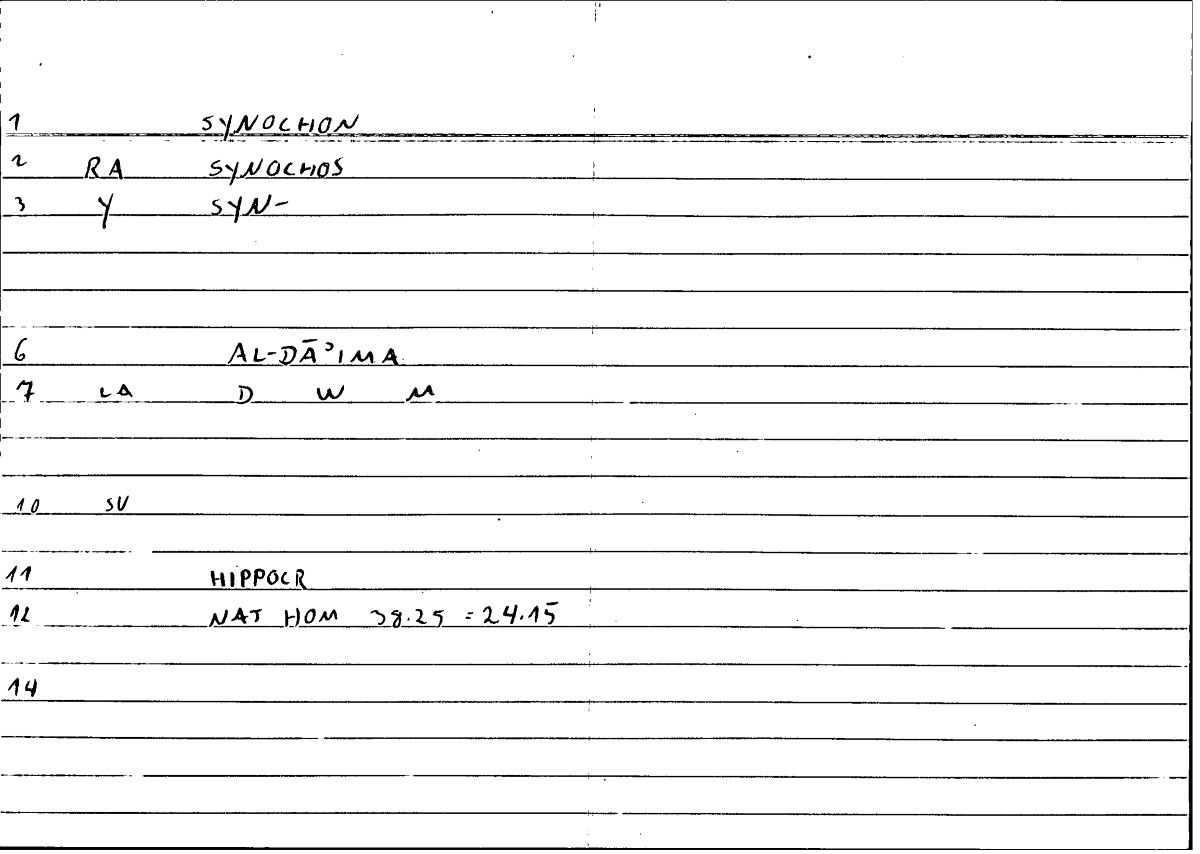 1 SYNOCHON
2 RA SYNOCHOS
3 Y SYN-
6 AL-DĀʾIMA
7 LA D W M
10 SU
11 HIPPOCR
12 NAT HOM 38.25 = 24.15
14